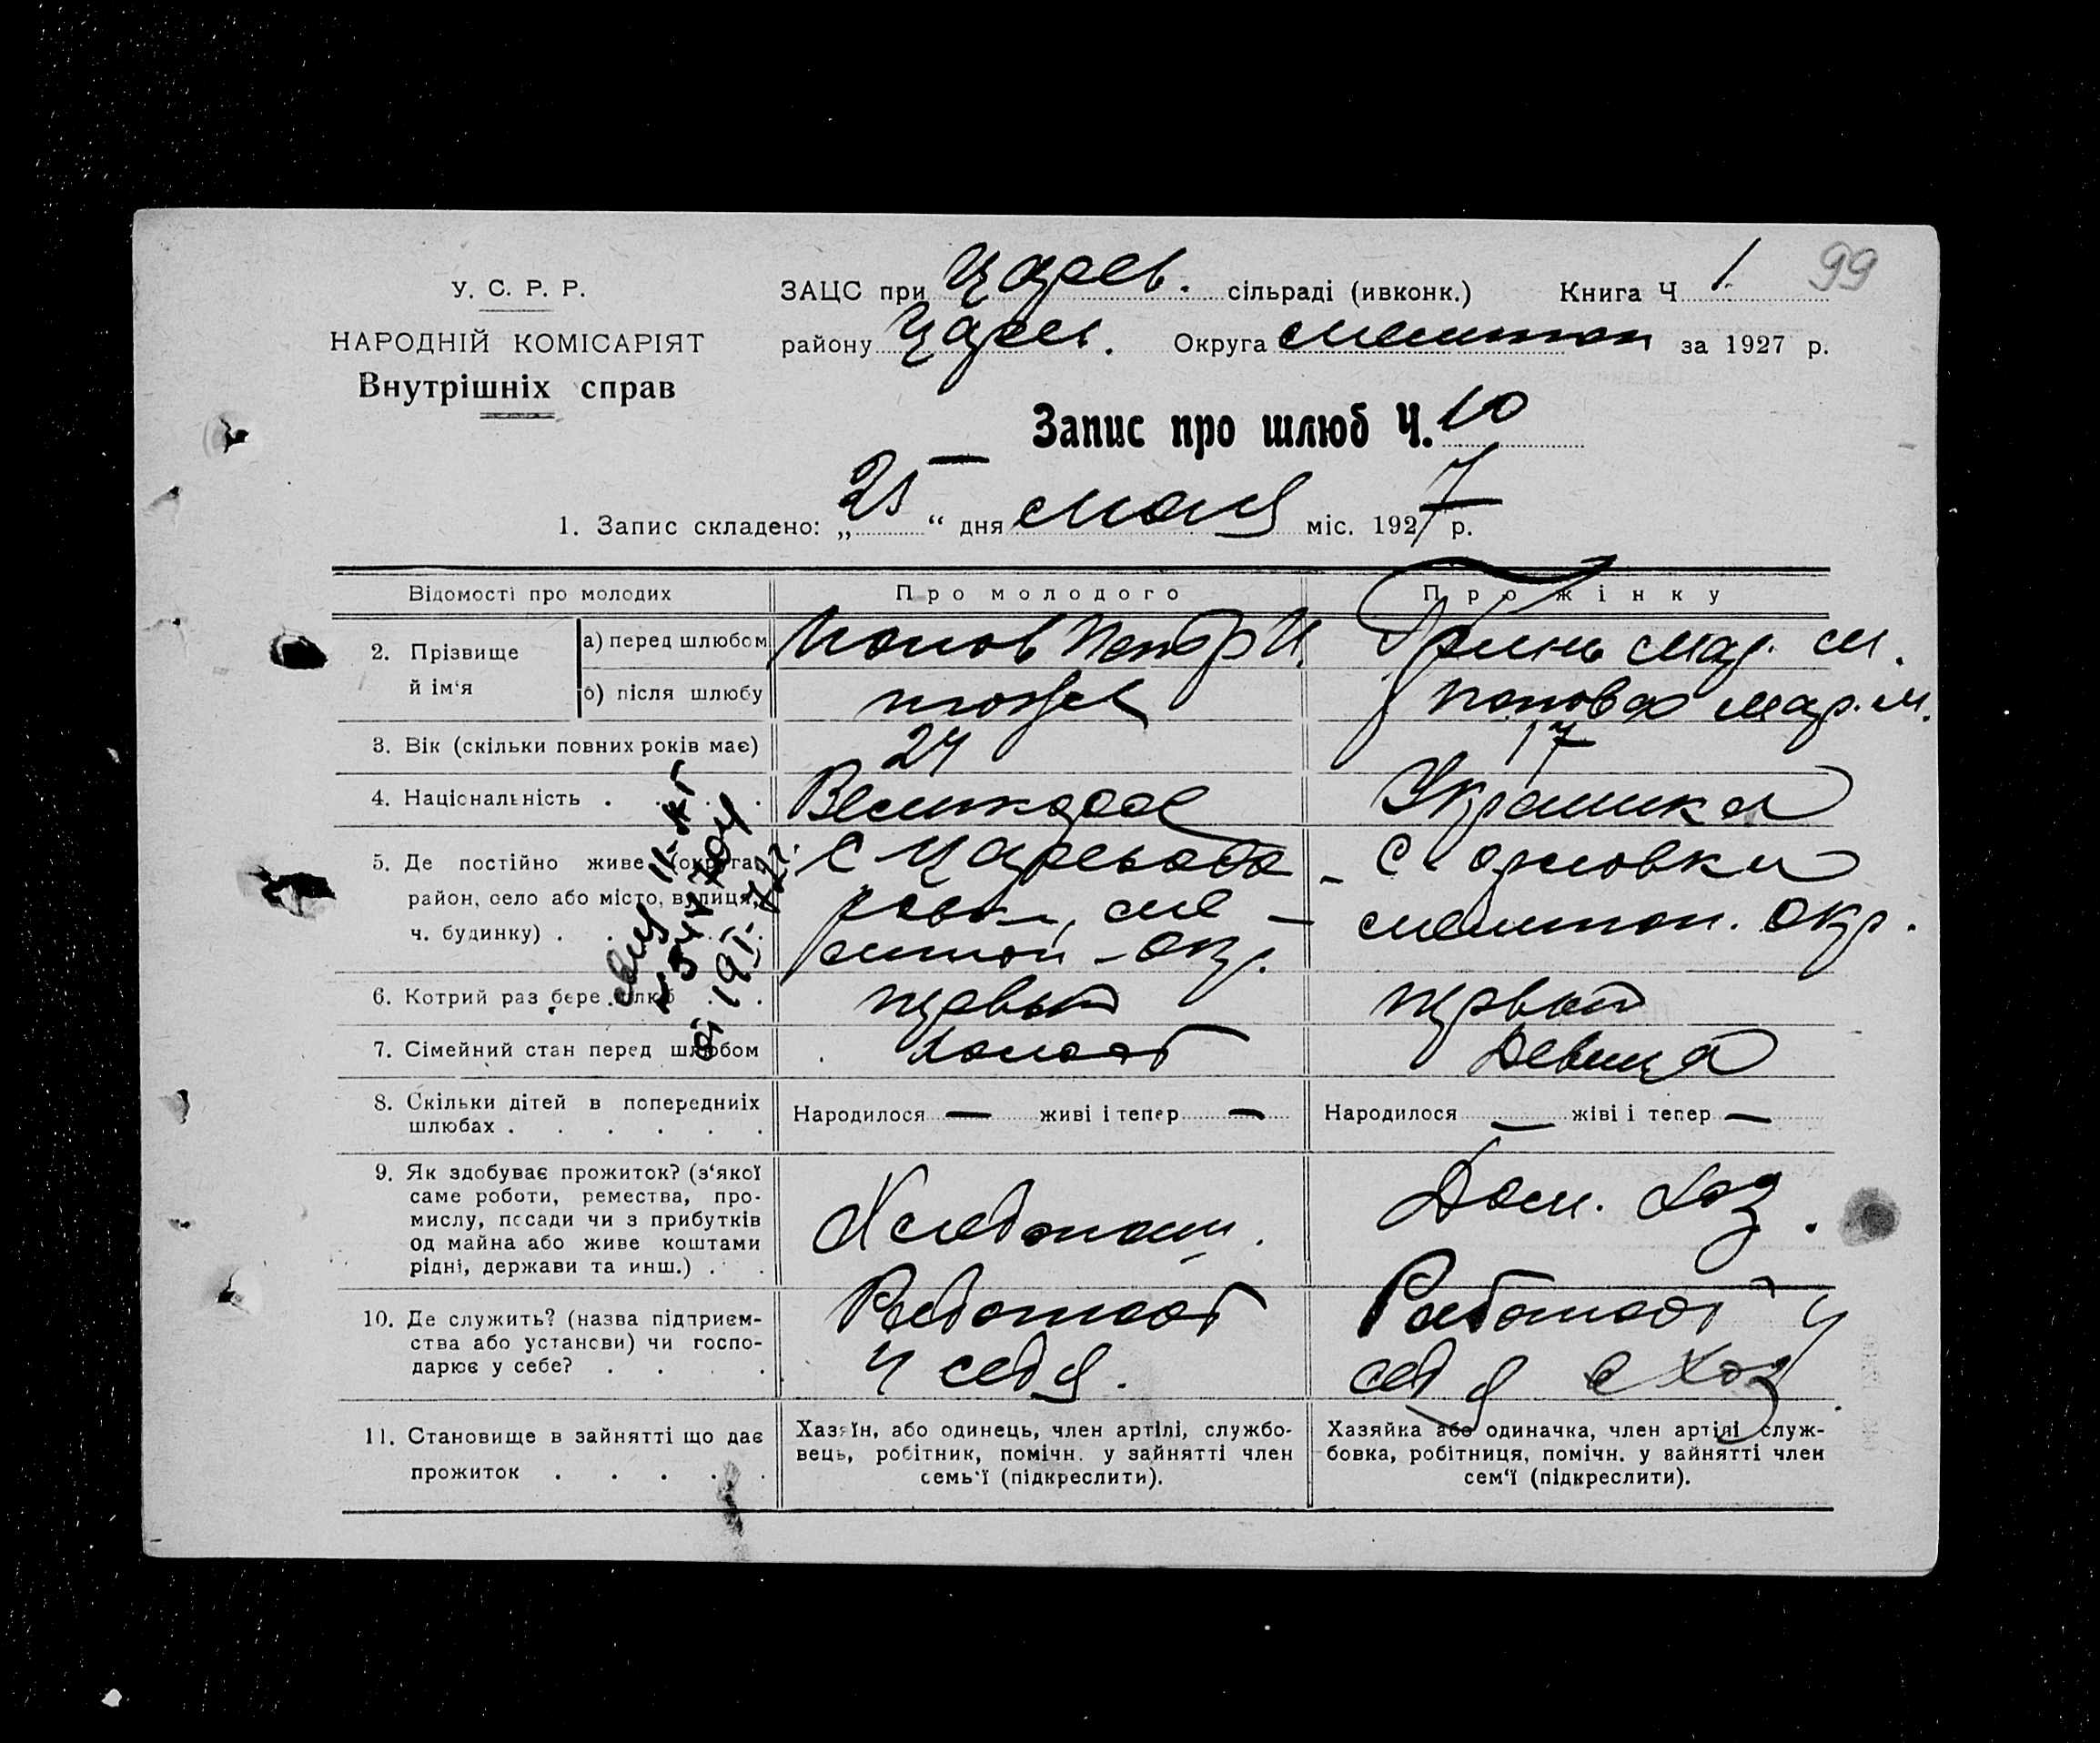 99
У. С. Р. Р.
НАРОДНІЙ КОМІСАРІЯТ
Внутрішніх справ
ЗАЦС при Царев. сільраді (ивконк.) Книга Ч 1
району Царев. Округа Мелитоп за 1927 р.
Запис про шлюб Ч. 10
1. Запис складено: „25“ дня мая міс. 1927 р.
Відомості про молодих
Про молодого
Про жінку
2. Прізвище й ім‘я
а) перед шлюбом
Попов Петр И.
Гринь Мар. М.
б) після шлюбу
тоже
Попова Мар. М.
3. Вік (скільки повних років має)
24
17
4. Національність . . . . .
Великорос
Украинка
5. Де постійно живе (округа,
район, село або місто, вулиця,
ч. будинку) . . . . .
с
Мелитоп. Окр.
с.
Мелитоп. Окр.
6. Котрий раз бере шлюб . . .
первый
первый
7. Сімейний стан перед шлюбом
холост
Девица
8. Скільки дітей в попередниіх
шлюбах . . . . . .
Народилося — живі і тепер —
Народилося — жіві і тепер —
9. Як здобуває прожиток? (з‘якої
саме роботи, ремества, про-
мислу, посади чи з прибутків
од майна або живе коштами
рідні, держави та инш.) . .
Хлебопаш.
Дом. Хоз.
10. Де служить? (назва підприєм-
ства або установи) чи госпо-
дарює у себе? . . . .
Работает
у себя.
Работает у
себя в Хоз.
11. Становище в зайнятті що дає
прожиток . . . . .
Хазяїн, або одинець, член артілі, службо-
вець, робітник, помічн. у зайнятті член
семь‘ї (підкреслити).
Хазяйка або одиначка, член артілі служ-
бовка, робітниця, помічн. у зайнятті член
сем‘ї (підкреслити).